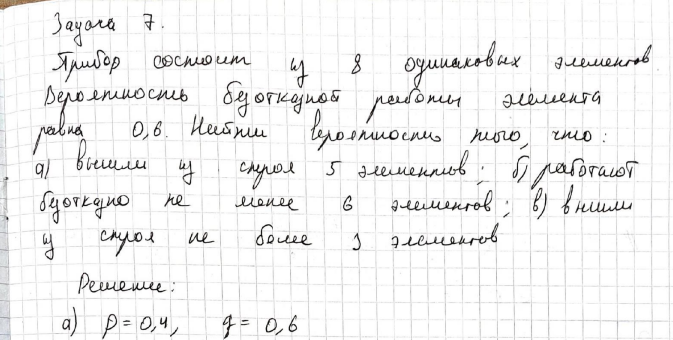 Задача 7.
Прибор состоит из 8 одинаковых элементов.
Вероятность безотказной работы элемента
равна 0,6. Найти вероятность того, что:
а) вышли из строя 5 элементов; б) работают
безотказно не менее 6 элементов; в) вышли
из строя не более элементов
Решение:
а) p = 0,4, q = 0,6